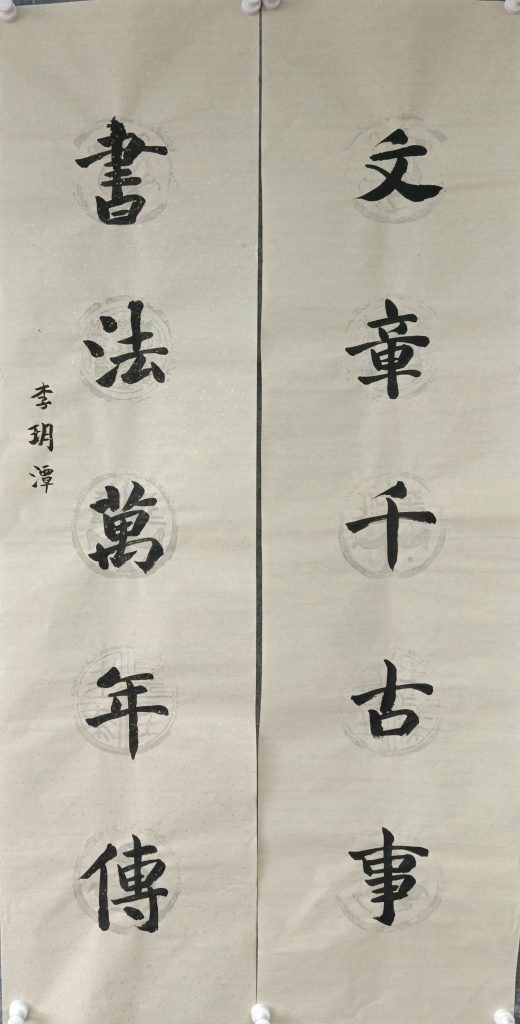 文章千古事
書法萬年傳
李玥潭